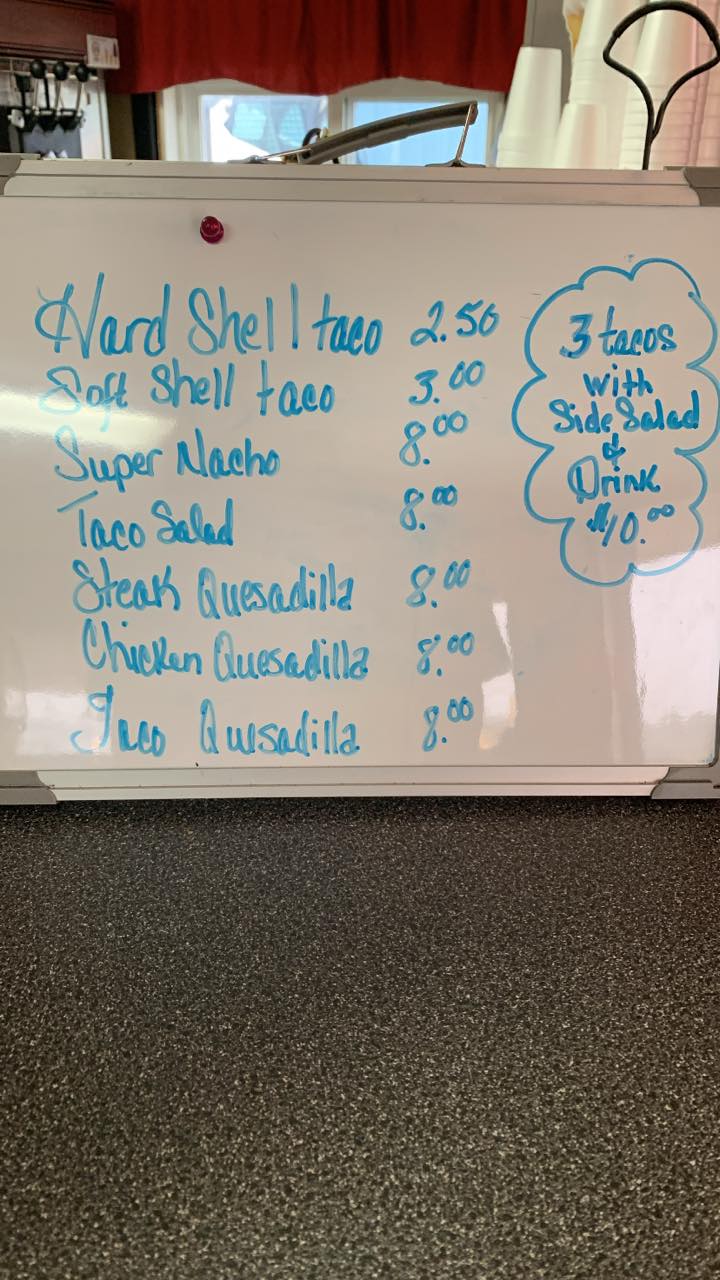 Hard Shell taco 2.50
Soft Shell taco 3.00
Super Nacho 8.00
Taco Salad 8.00
Steak Quesadilla 8.00
Chicken Quesadilla 8.00
Taco Quesadilla 8.00
3 tacos
with
Side Salad
&
Drink
$10.00